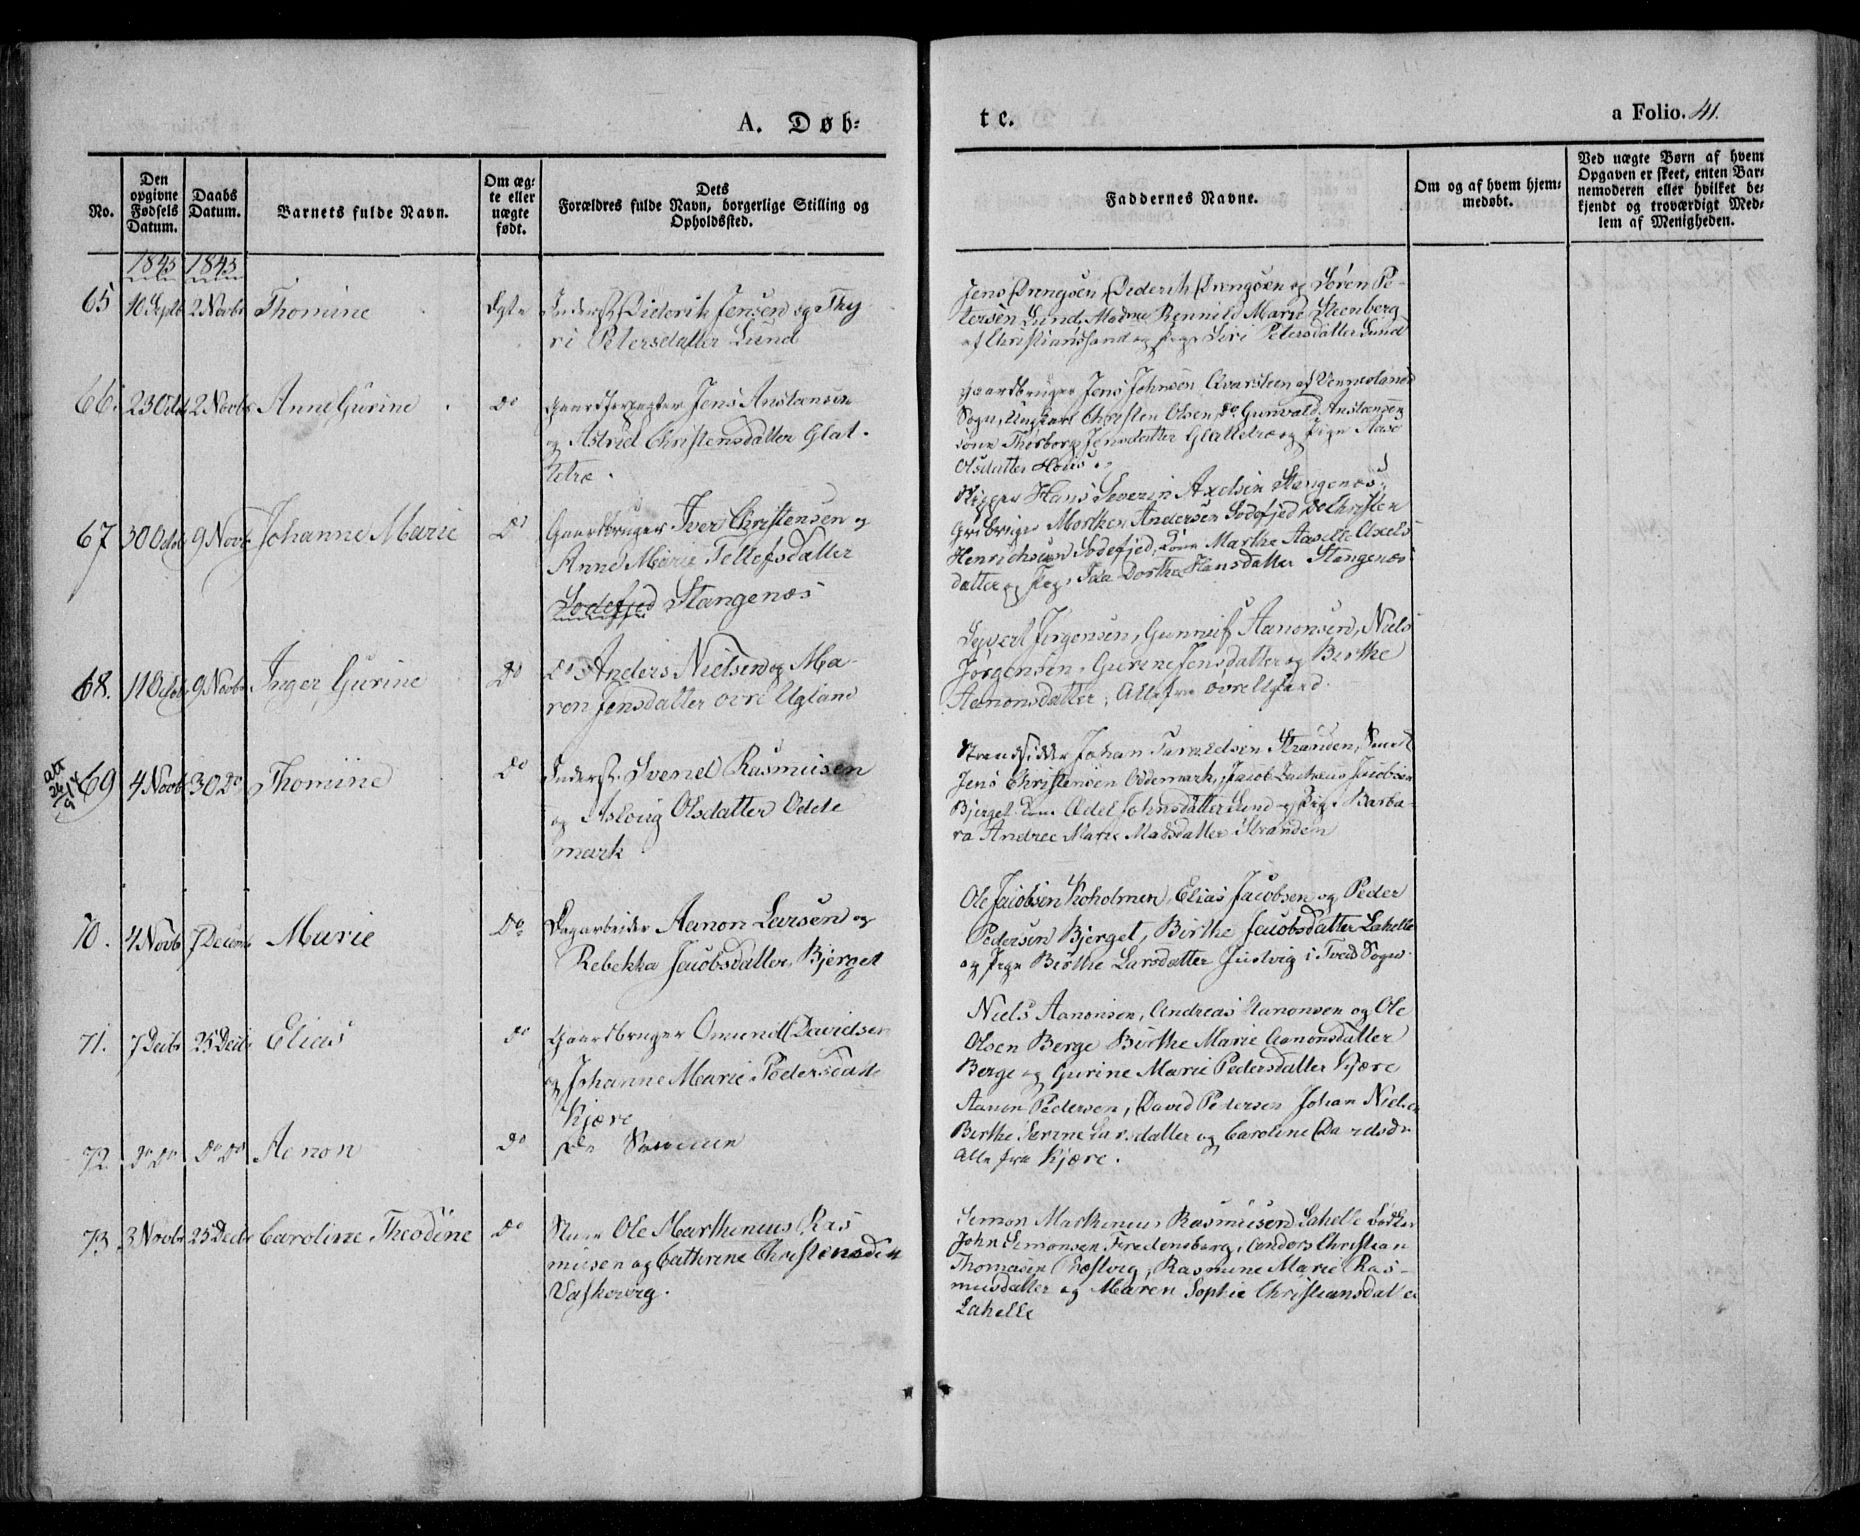 A. Døb-
te.
a Folio. 41.
No.
Den opgivne Fødsels Datum.
Daabs Datum.
Barnets fulde Navn.
Om ægte eller nægte født.
Dets
Forældres fulde Navn, borgerlige Stilling og
Opholdssted.
Faddernes Navne.
Om og af hvem hjem-
medøbt.
Ved nægte Børn af hvem
Opgaven er skeet, enten Bar-
nemoderen eller hvilket be-
kjendt og troværdigt Med-
lem af Menigheden.
1845 1845
65 10 Septb 2 Novbr Thomine Ægte Inderst Diderik Jensen og Thy-
ri Petersdatter Lund
Jens Drengsen, Diderik Drengsen og Sören Pe-
tersen Lund, Marie Steenberg
af Christianssand og Pige Siri Petersdatter Lund
66. 23 Octb 2 Novbr Anne Gurine Do Gaardforpagter Jens Anstensen
og Astrid Christensdatter Glat-
tetræ.
Gaardbruger Jens Johnsen Qvarsteen af Vennesland
Sogn, Ungkarl Christen Olsen, do Gunvald Anstensen
Kone Thorborg Jensdatter Glattetræ og Pige Aase
Olsdatter
67 30 Octb 9 Novbr Johanne Marie Do Gaardbruger Iver Christensen og
Anne Marie Tellefsdatter
Sodefjed Stangenæs
Skipper Hans Severin Axelsen Stangenæs,
Grdbruger Morthen Andersen Sodefjed, Do Christen
Henrichsen Sodefjed, Kone Marthe Aaselle Axels-
datter og Pige Ida Dorthea Hansdatter Stangenæs
68. 11 Octb 9 Novbr Inger Gurine Do Do Anders Nielsen og Ma-
ren Jensdatter övre Ugland
Sejvert Jörgensen, Gunnuf Aanonsen, Niels
Jörgensen, Gurine Jensdatter og Birthe
Aanonsdatter, Alle fra övre Ugland.
69 4 Novbr 30 Do Thomine Do Inderst Svend Rasmusen
og Asloug Olsdatter Odde
mark
Strandsidder Johan Stranden,
Jens Christensen Oddemark, Jacob Jacobsen
Bjerget Kone Adel Johnsdatter Lund og Pige Barba-
ra Andree Marie Madsdatter Stranden
70. 4 Novb 7 Decemb Marie Do Dagarbeider Aanon Larsen og
Rebekka Jacobsdatter, Bjerget
Ole Jacobsen Koholmen, Elias Jacobsen og Peder
Pedersen Bjerget, Birthe Jacobsdatter Lahelle
og Pige Birthe Larsdatter Justvig i Tveid Sogn.
71. 7 Decbr 25 Decbr Elias Do Gaardbruger Omund Davidsen
og Johanne Marie Pedersdatt
Kjære
Niels Aanonsen, Andreas Aanonsen og Ole
Olsen Berge Birthe Marie Aanonsdatter
Berge og Gurine Marie Pedersdatter Kjære
72 Do Do Do Do Aanon Do De Samme
Aanon Pedersen, David Pedersen Johan Nielsen
Birthe Serine Larsdatter og Caroline Davidsdr
Alle fra Kjære.
73. 3 Novbr 25 Decbr Caroline Theodine Do Ole Marthineus Ras
musen og Cathrine Christensdatt
Simon Marthineus Rasmusen Lahelle
John Simonsen Fredensborg, Anders Christian
Thomasen Præstvig, Rasmine Marie Ras-
musdatter og Maren Sophie Christiansdatter
Lahelle